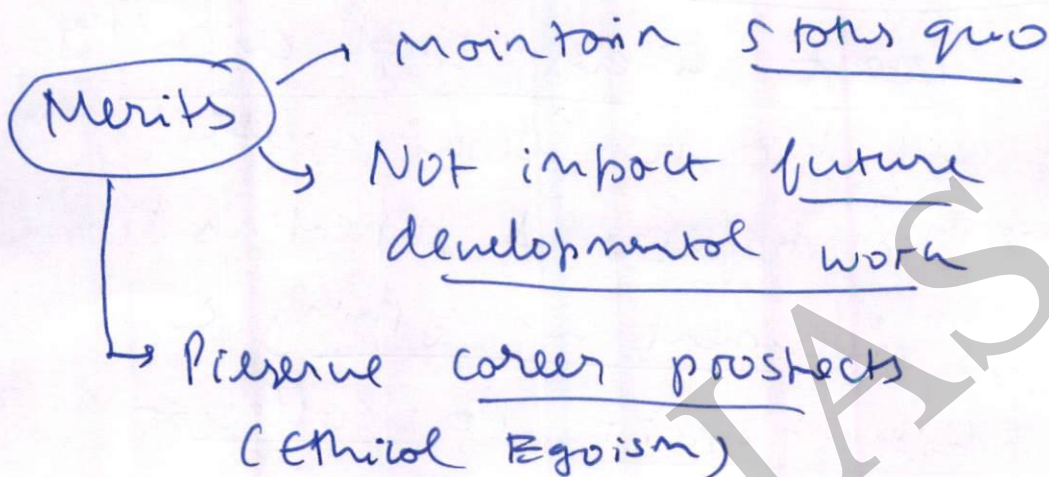 Merits
→ Maintain status quo
→ Not impact future
developmental work
→ Preserve career prospects
(Ethical Egoism)
IAS